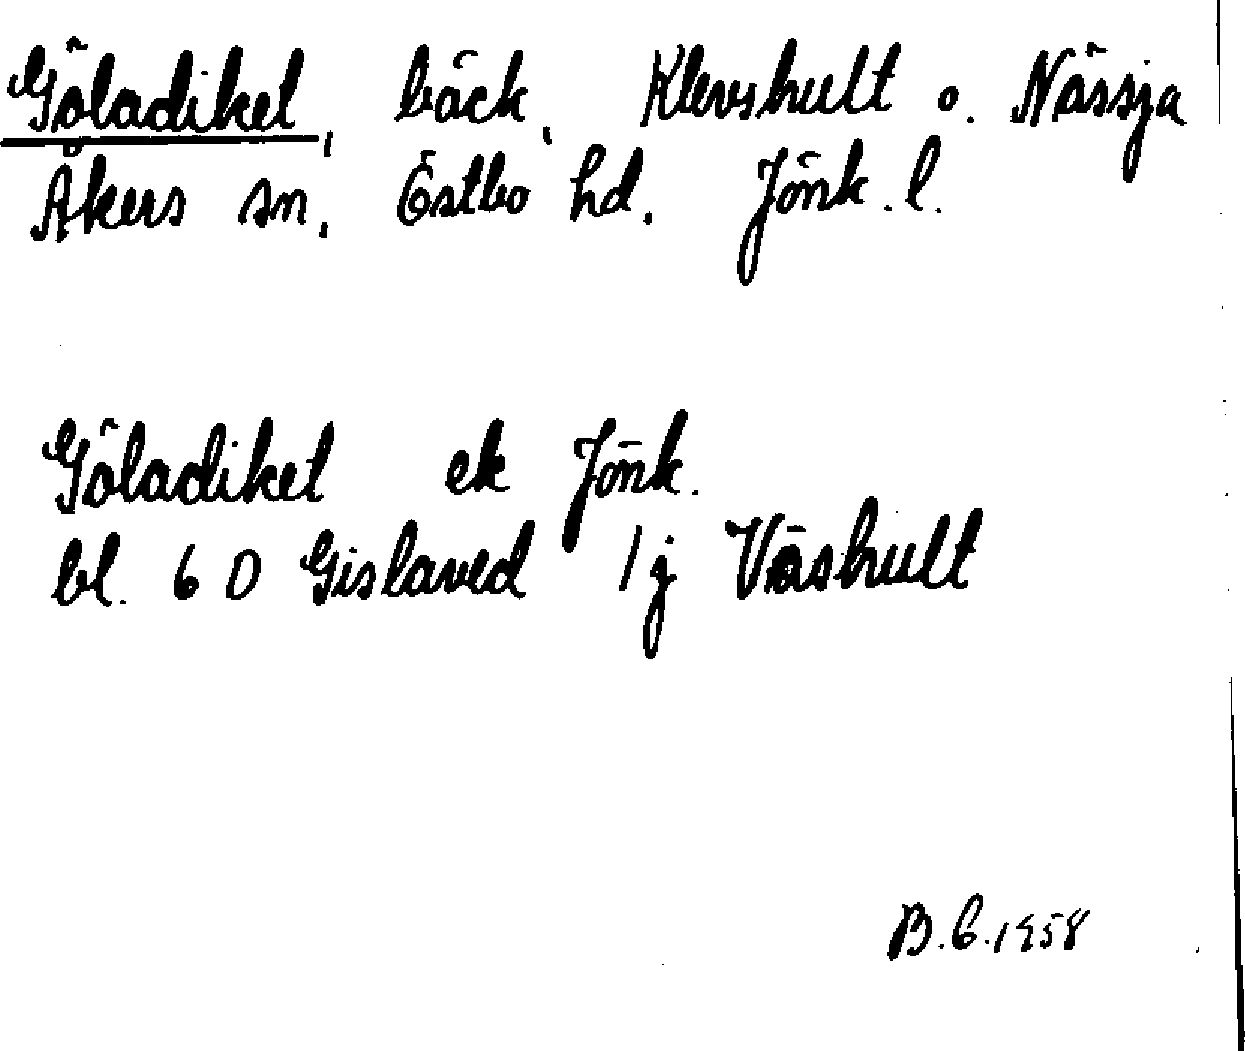 Göladiket, bäck, Klevshult o. Nässja
Åkers sn, Östbo hd. Jönk. l.
Göladiket ek Jönk.
bl. 6 D Gislaved 1 j Våshult
B.G. 1958